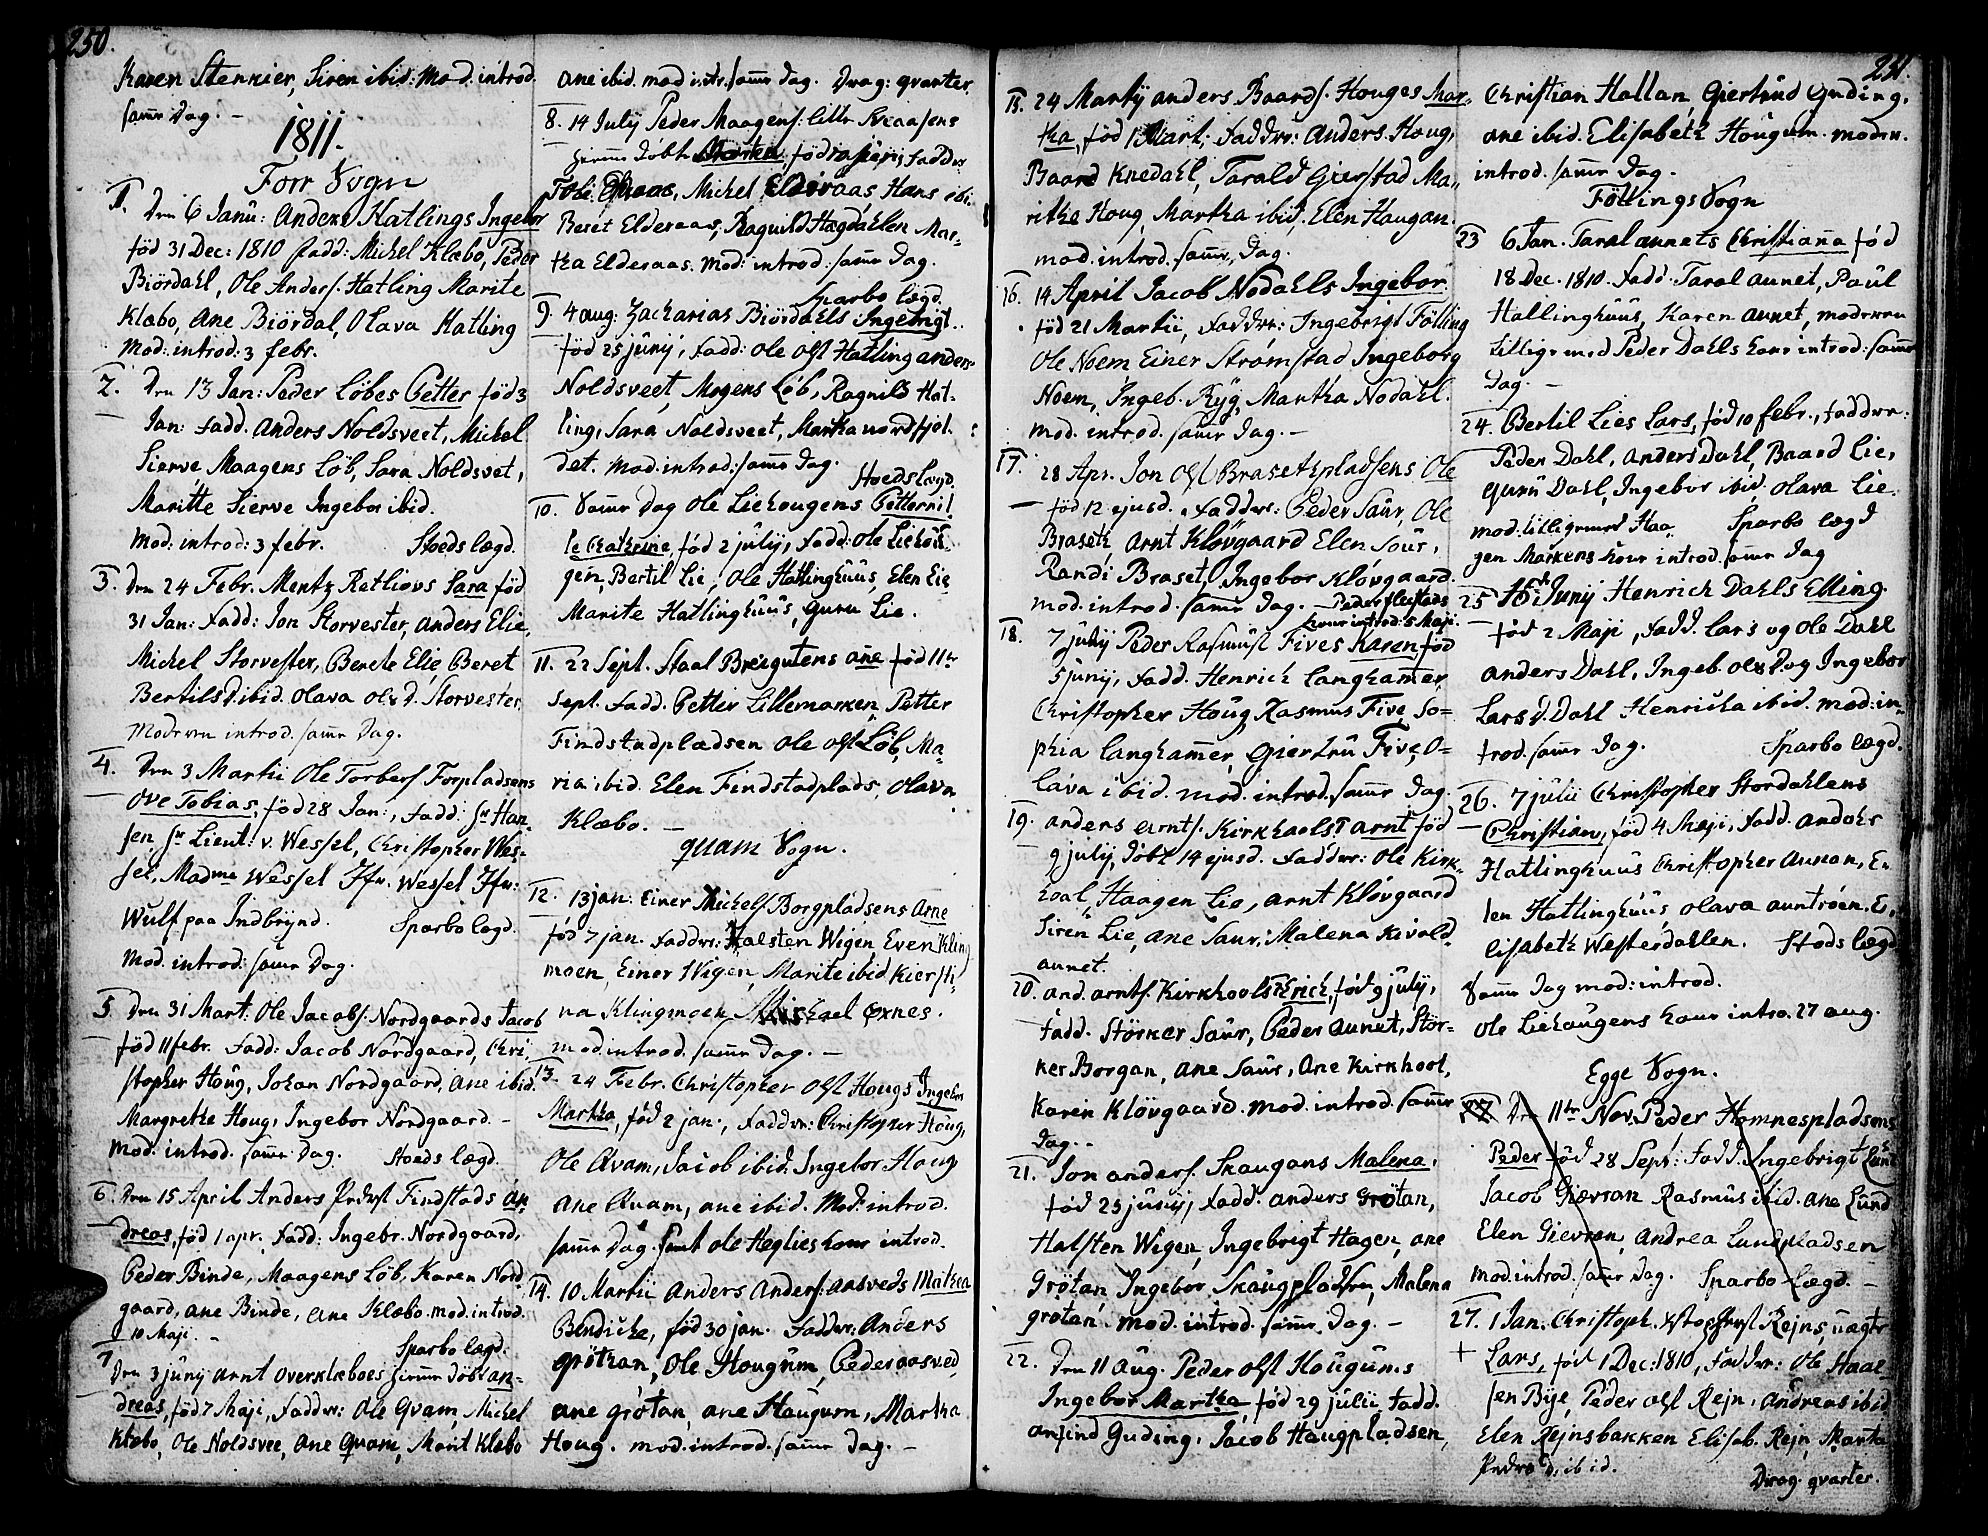 250.
Karen Stenkier, Siren ibid: Mod. introd.
samme Dag. –
1811.
Forr Sogn
1. Den 6 Janu: Anders Hatlings Ingebor
fød 31 Dec: 1810 fadd: Michel Klæbo, Peder
Biördahl, Ole Anders. Hatling Marite
Klæbo, Ane Biördal, Olava Hatling
Mod: introd: 3 febr.
2. Den 13 Jan: Peder Löbes Petter fød 3
Jan: fadd. Anders Noldsveet, Michel
Sierve Maagens Löb, Sara Noldsvet,
Maritte Sierve Ingebor ibid.
Mod: introd: 3 febr. Stoeds lægd.
3. Den 24 Febr. Mentz Retliovs Sara fød
31 Jan: fadd: Jon Storvester, Anders Elie,
Michel Storvester, Berete Elie Beret
Bertilsd. ibid. Olava Ols d. Storvester
Moderen introd. samme Dag.
4. Den 3 Martii Ole Torbers. Forpladsens
Ove Tobias, fød 28 Jan:, fadd: Sr Han-
sen Sr Lieut: v. Wessel, Christopher Wes-
sel, Madme Wessel Jfr. Wessel Jfr:
Wulf paa Indbrynd. Sparbo lægd.
Mod. introd: samme Dag.
5 Den 31 Mart: Ole Jacobs. Nordgaards Jacob
fød 11 febr. fadd: Jacob Nordgaard, Chri-
stopher Houg, Johan Nordgaard, Ane ibid.
Margrethe Houg, Ingebor Nordgaard. –
Mod: introd. samme Dag. Stoeds lægd.
6. Den 15 April Anders Peders. Findstads An-
dreas, fød 1 apr. fadd: Ingebr. Nordgaard,
Peder Binde, Maagens Löb, Karen Nord
gaard, Ane Binde, Ane Klæbo. mod. introd.
10 Maji. – Sparbo lægd.
7 Den 3 junij Arnt Overklæboes hiemme döbt An-
dreas, fød 7 Maji, fadder: Ole Qvam, Michel
Klæbo, Ole Noldsvee, Ane Qvam, Marit Klæbo
Ane ibid. mod introd. samme Dag. Drag: qvarter.
8. 14 July Peder Maagens: lille
hiemme döbt Morten fød fadder
Michel Elderaas, Hans ibi.
Beret Elderaas, Ragnild Hægdahlen Mar-
tha Elderaas. Mod: introd. samme Dag.
Sparbo lægd.
9. 4 aug: Zacharias Biördahls Ingebrigt.
fød 25 junij, fadd: Ole Ols. Hatling Anders
Noldsveet, Mogens Löb, Ragnild Hat-
ling, Sara Noldsveet, Martha nordfjel.
det. Mod. introd: samme Dag.
Stoeds lægd.
10. Samme Dag Ole Liehougens Petternil
le Cathrine, fød 2 julij, fadd: Ole Liehou-
gen, Bertil Lie, Ole Hatlinghuus, Elen Lie
Marite Hatlinghuus, Guru Lie.
11. 22 Sept. Staal Breigutens Ane fød 11te
Sept. fadd. Petter Lillemarken, Petter
Findstadplædsen Ole Ols. Löb, Ma-
ria ibid. Elen Findstadplads, Olava
Klæbo. –
Quam Sogn.
12. 13 jan: Einer Michels. Borgpladsens Arne
fød 7 jan. fadder: Halsten Wigen Even Kling
moen, Einer Wigen, Marite ibid Kiersti-
na Klingmoen Michael Oxnes.
mod introd. samme Dag. –
13. 24 Febr. Christopher Ols. Hougs Ingebor
Martha, fød 2 jan:, fadder: Christopher Houg,
Ole Qvam, Jacob ibid. Ingebor Houg
Ane Qvam, Ane ibid. Mod: introd.
samme Dag. samt Ole Heglies Kone introd.
14. 10 Martii Anders Anders. Aasveds Mathea
Bendicke, fød 30 jan. fadder: Anders
Gröthan, Ole Hougum, Peder Aasved,
Ane Grötan, Ane Haugum, Martha
Houg. mod. introd. samme Dag. –
251.
15. 24 Martij Anders Baards. Houges Mar-
tha, fød 1 Mart: fadder: Anders Houg,
Baard Knedahl, Tarald Gierstad Ma-
ritha Houg, Martha ibid. Elen Haugan.
mod. introd. samme Dag.
16. 14 April Jacob Nodahls Ingebor.
fød 21 Martii, fadder: Ingebrigt Fölling
Ole Noem Einer Strömstad Ingeborg
Noem, Ingeb. Ryg, Martha Nodahl.
Mod. introd. samme Dag. –
17. 28 Apr. Jon Ols. Brasethpladsens Ole
fød 12 ejusd. fadder: Peder Saur, Ole
Braseth, Arnt Klövgaard Elen Sour,
Randi Braset, Ingebor Klövgaard.
mod. introd. samme Dag. – Peder
Kone introd: 5 Maji.
18. 7 julij Peder Rasmus. Fives Karen fød
5 junij, fadd. Henrich Langhamer,
Christopher Houg, Rasmus Five, So-
phia Langhamer, Giertru Five, O-
lava ibid. mod. introd. samme Dag.
19. Anders Arnts. Kirkhools T Arnt fød
9 julij, döbt 14 ejusd. fadder: Ole Kirk
hoal, Haagen Lie, Arnt Klövgaard
Siren Lie, Ane Saur. Malena Kivold-
aunet.
20. And. Arnts. Kirkhools T Erich, fød 9 july,
fadd. Störker Saur, Peder Aunet, Stör-
ker Borgan, Ane Saur, Ane Kirkhool,
Karen Klövgaard. mod. introd. samme
Dag. –
21. Jon Anders. Skaugans Malena.
fød 25 junij, fadd: Anders Grötan,
Halsten Wigen, Ingebrigt Hagen, Ane
Grötan Ingebor Skaugpladsen, Malena
Grotan. mod. introd. samme Dag. –
22. Den 11 Aug. Peder Ols. Hougums
Ingebor Martha, fød 29 julii fadd.
Anfind Guding, Jacob Haugpladsen,
Christian Hallan, Giertrud Guding,
Ane ibid. Elisabeth Hougum. moderen.
introd. samme Dag.
Föllings Sogn
23 6 Jan. Taral Aunets Christianna fød
18 Dec. 1810. fadd. Taral Aunet, Paul
Hallinghuus, Karen Aunet, moderen
tillige med Peder Dahls Kone introd: samme
Dag. –
24. Bertil Lies Lars, fød 10 febr., fadder:
Peder Dahl, Anders Dahl, Baard Lie,
Guru Dahl, Ingebor ibid. Olava Lie.
mod. tilligemed Haa- Sparbo lægd
gen Markens Kone introd. samme Dag
25 16de Junij Henrich Dahls Elling.
fød 2 Maji, fadd. Lars og Ole Dahl
Anders Dahl, Ingeb. Ols d. og Ingebor
Lars d. Dahl Henricha ibid. mod: in-
trod. samme Dag. Sparbo lægd.
26. 7 julii Christopher Stordahlens
Christian, fød 4 Maji, fadd. Anders
Hatlinghuus Christopher Aunan, E-
len Hatlinghuus, Olava Auntröen. E-
lisabeth Westerdahlen. Stods lægd
Samme Dag mod: introd.
Ole Liehaugens Kone intro. 27 aug.
Egge Sogn.
27 Den 11te Nov. Peder Homnespladsens
Peder fød 28 Sept: fadd. Ingebrigt Lund
Jacob Giævran Rasmus ibid. Ane Lund
Elen Gievran, Andrea Lundpladsen
Mod. introd. samme Dag. Sparbo lægd. –
27. 1 Jan. Christoph. Rejns uægte
+ Lars, fød 1 Dec: 1810, fadder: Ole Haal
sen Bye, Peder Ols. Rejn, Andreas ibid
Elen Rejnsbakken Elisab. Rejn, Marta
Peders d. ibid.
Drag. qvarter.